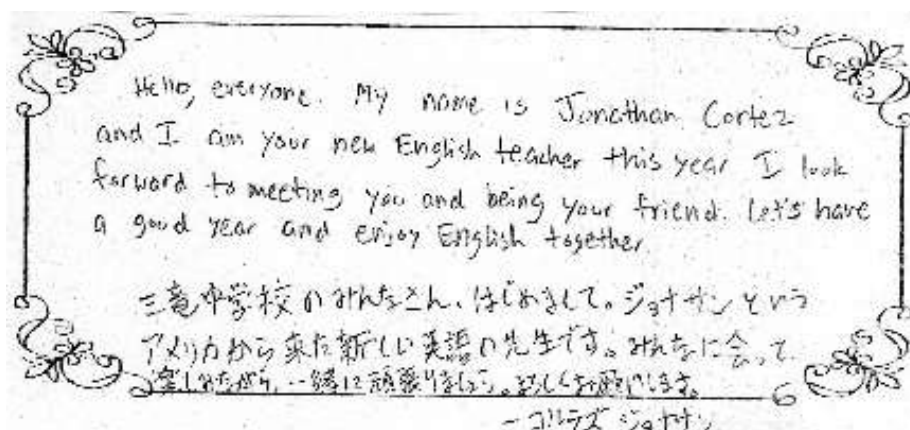 Hello, everyone. My name is Jonathan Cortez
and I am your new English teacher this year I look
forward to meeting you and being your friend. Let's have
a good year and enjoy English together.
三竜中学校のみんなさん、はじめまして。ジョナサンという
アメリカから来た新しい英語の先生です。みんなに会って
楽しみながら、一緒に頑張りましょう。よろしくお願いします。
－コルテズ ジョナサン